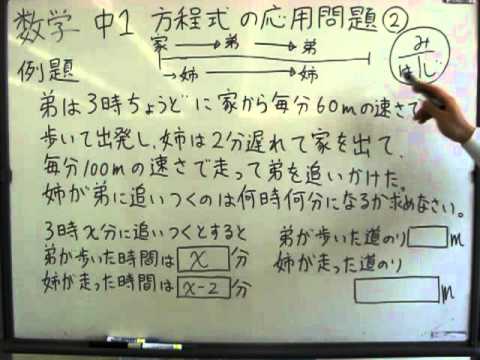 数学 中1 方程式の応用問題②
家 → 弟 → 弟
→姉 → 姉
み
はじ
例題
弟は3時ちょうどに家から毎分60mの速さで
歩いて出発し、姉は2分遅れて家を出て、
毎分100mの速さで走って弟を追いかけた。
姉が弟に追いつくのは何時何分になるか求めなさい。
3時x分に追いつくとすると
弟が歩いた時間は x 分
姉が走った時間は x-2 分
弟が歩いた道のり m
姉が走った道のり
m